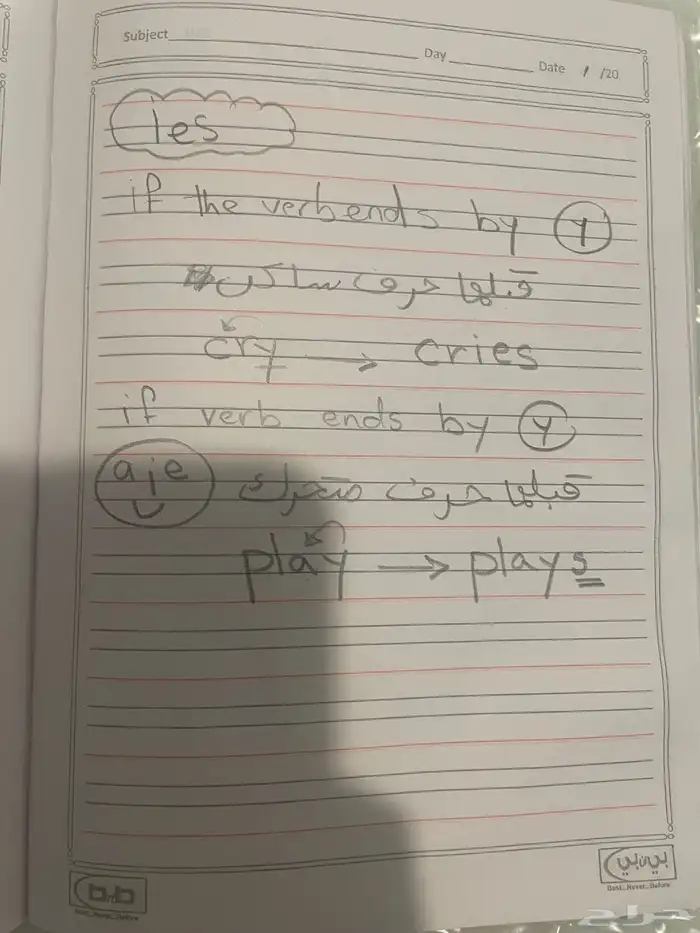 Subject
Day
Date / /20
ies
if the verb ends by y
قبلها حرف ساكن
cry → cries
if verb ends by y
قبلها حرف متحرك
aie
play → plays
Best..Never..Before
Best..Never..Before
حراج